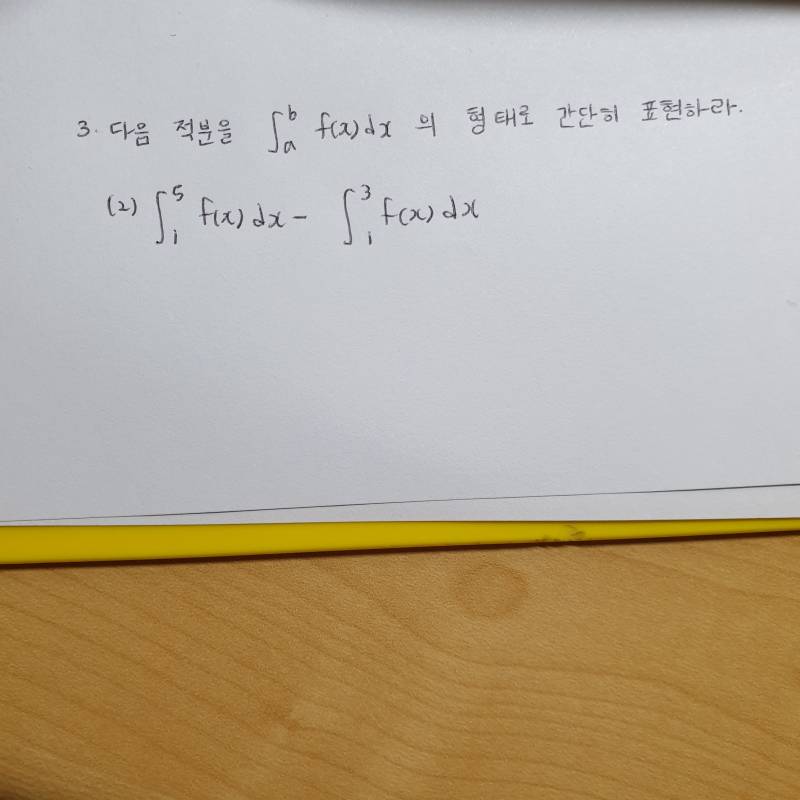 3. 다음 적분을 ∫ₐᵇ f(x)dx 의 형태로 간단히 표현하라.
(2) ∫₁⁵ f(x)dx - ∫₁³ f(x)dx